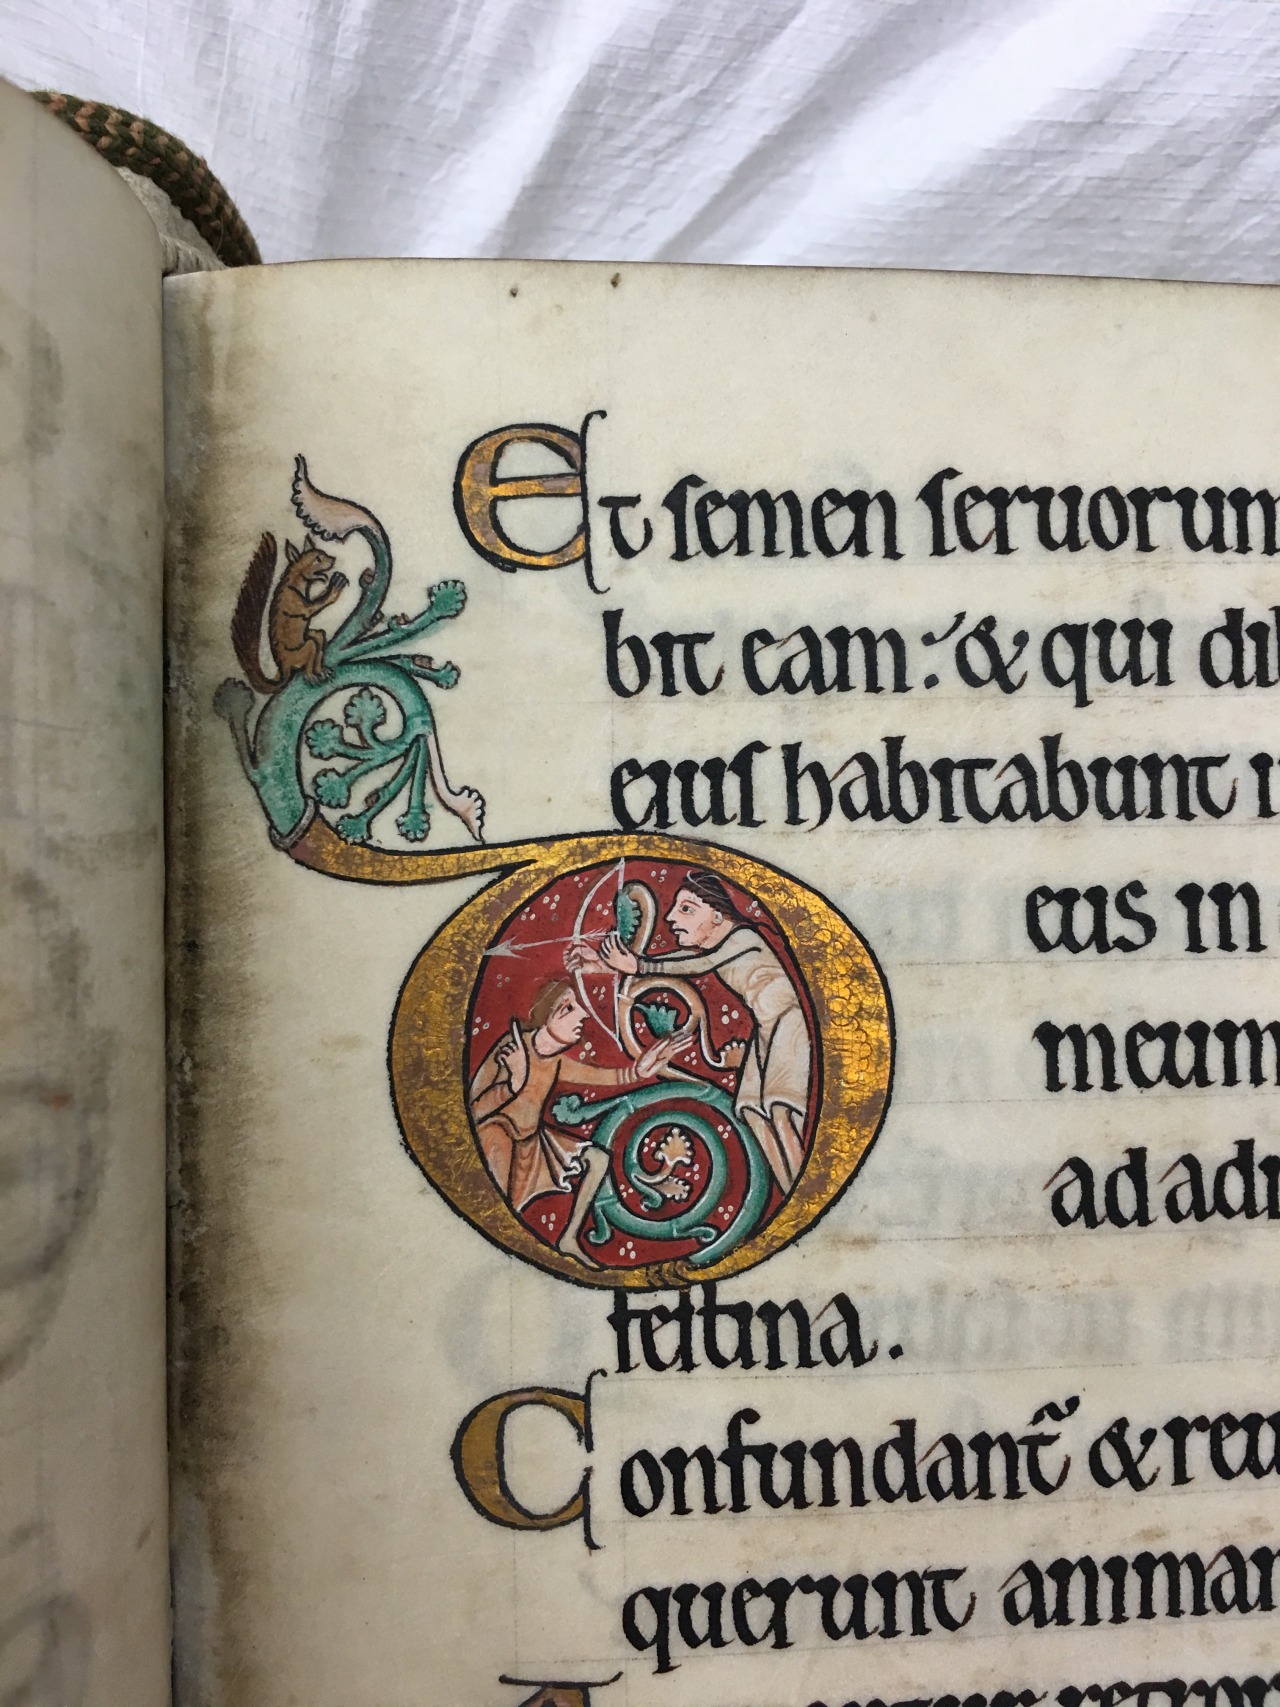 Et semen seruorum
bit eam: & qui dil
eius habitabunt i
Deus in
meum
ad adi
festina.
Confundant̃ & reu
querunt animam